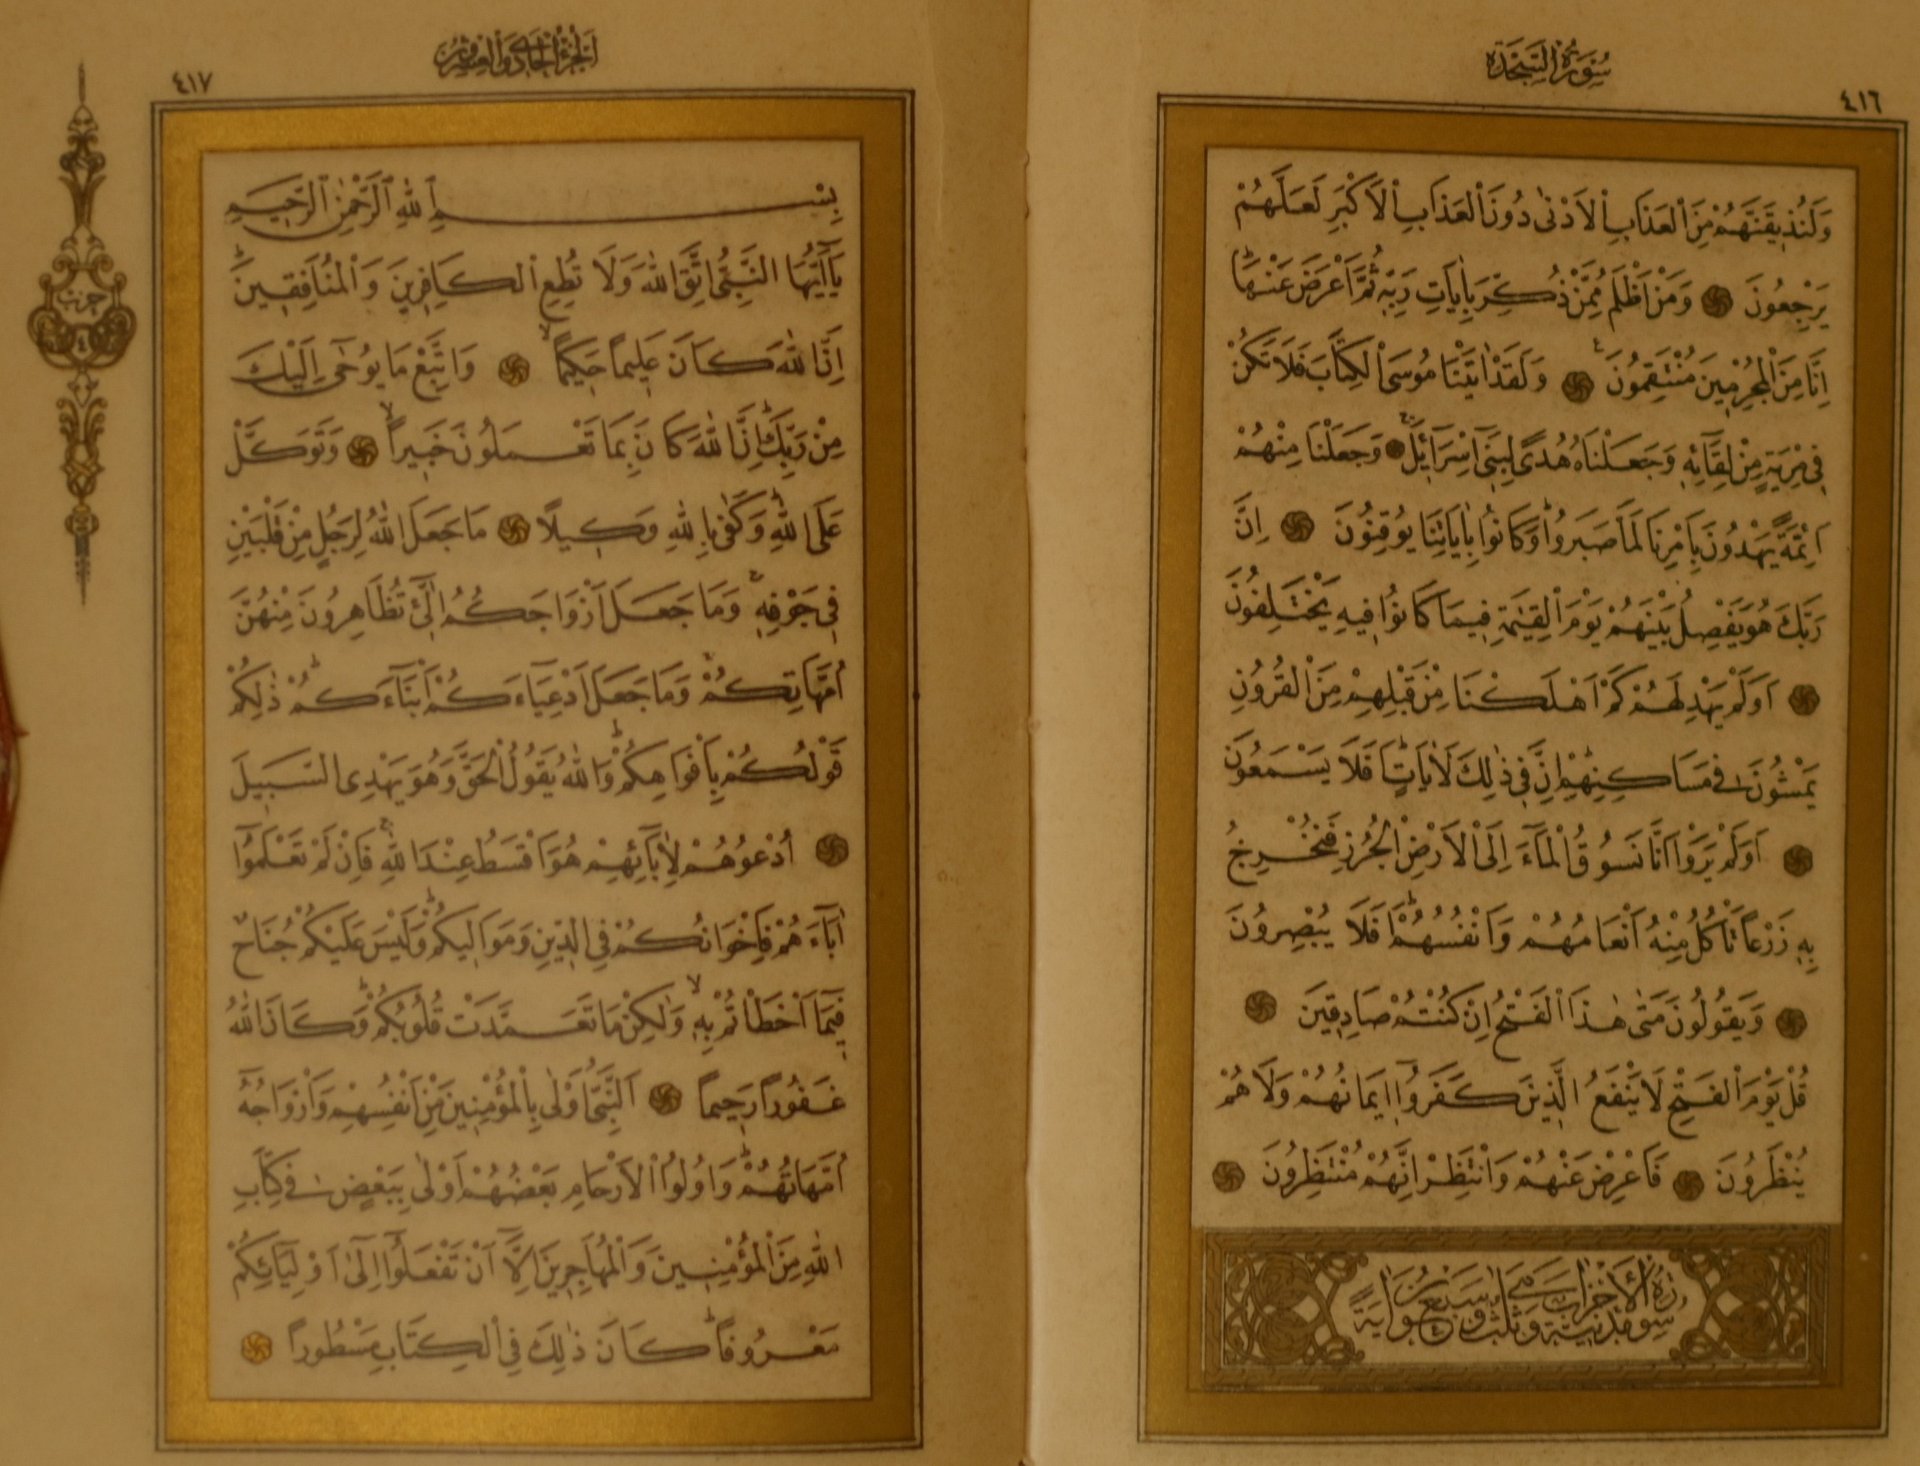 سُورَةُ السَّجْدَةِ
٤١٦
وَلَنُذِيقَنَّهُمْ مِنَ الْعَذَابِ الْاَدْنٰى دُونَ الْعَذَابِ الْاَكْبَرِ لَعَلَّهُمْ
يَرْجِعُونَ ۞ وَمَنْ اَظْلَمُ مِمَّنْ ذُكِّرَ بِاٰيَاتِ رَبِّهٖ ثُمَّ اَعْرَضَ عَنْهَاۜ
اِنَّا مِنَ الْمُجْرِمِينَ مُنْتَقِمُونَ ۞ وَلَقَدْ اٰتَيْنَا مُوسَى الْكِتَابَ فَلَا تَكُنْ
فِى مِرْيَةٍ مِنْ لِقَٓائِهٖ وَجَعَلْنَاهُ هُدًى لِبَنٖٓى اِسْرَٓائٖلَ ۞ وَجَعَلْنَا مِنْهُمْ
اَئِمَّةً يَهْدُونَ بِاَمْرِنَا لَمَّا صَبَرُواۜ وَكَانُوا بِاٰيَاتِنَا يُوقِنُونَ ۞ اِنَّ
رَبَّكَ هُوَ يَفْصِلُ بَيْنَهُمْ يَوْمَ الْقِيٰمَةِ فٖيمَا كَانُوا فٖيهِ يَخْتَلِفُونَ
۞ اَوَلَمْ يَهْدِ لَهُمْ كَمْ اَهْلَكْنَا مِنْ قَبْلِهِمْ مِنَ الْقُرُونِ
يَمْشُونَ فٖى مَسَاكِنِهِمْ اِنَّ فٖى ذٰلِكَ لَاٰيَاتٍۜ اَفَلَا يَسْمَعُونَ
۞ اَوَلَمْ يَرَوْا اَنَّا نَسُوقُ الْمَٓاءَ اِلَى الْاَرْضِ الْجُرُزِ فَنُخْرِجُ
بِهٖ زَرْعًا تَأْكُلُ مِنْهُ اَنْعَامُهُمْ وَاَنْفُسُهُمْۜ اَفَلَا يُبْصِرُونَ
۞ وَيَقُولُونَ مَتٰى هٰذَا الْفَتْحُ اِنْ كُنْتُمْ صَادِقٖينَ ۞
قُلْ يَوْمَ الْفَتْحِ لَا يَنْفَعُ الَّذٖينَ كَفَرُٓوا اٖيمَانُهُمْ وَلَا هُمْ
يُنْظَرُونَ ۞ فَاَعْرِضْ عَنْهُمْ وَانْتَظِرْ اِنَّهُمْ مُنْتَظِرُونَ ۞
سُورَةُ الْاَحْزَابِ مَدَنِيَّةٌ وَهِىَ ثَلٰثٌ وَسَبْعُونَ اٰيَةً
اَلْجُزْءُ الْحَادِى وَالْعِشْرُونَ
٤١٧
بِسْمِ اللّٰهِ الرَّحْمٰنِ الرَّحٖيمِ
يَٓا اَيُّهَا النَّبِىُّ اتَّقِ اللّٰهَ وَلَا تُطِعِ الْكَافِرٖينَ وَالْمُنَافِقٖينَۜ
اِنَّ اللّٰهَ كَانَ عَلٖيمًا حَكٖيمًا ۞ وَاتَّبِعْ مَا يُوحٰٓى اِلَيْكَ
مِنْ رَبِّكَۜ اِنَّ اللّٰهَ كَانَ بِمَا تَعْمَلُونَ خَبٖيرًا ۞ وَتَوَكَّلْ
عَلَى اللّٰهِۜ وَكَفٰى بِاللّٰهِ وَكٖيلًا ۞ مَا جَعَلَ اللّٰهُ لِرَجُلٍ مِنْ قَلْبَيْنِ
فٖى جَوْفِهٖ وَمَا جَعَلَ اَزْوَاجَكُمُ الّٰٓئٖ تُظَاهِرُونَ مِنْهُنَّ
اُمَّهَاتِكُمْ وَمَا جَعَلَ اَدْعِيَٓاءَكُمْ اَبْنَٓاءَكُمْۜ ذٰلِكُمْ
قَوْلُكُمْ بِاَفْوَاهِكُمْۜ وَاللّٰهُ يَقُولُ الْحَقَّ وَهُوَ يَهْدِى السَّبٖيلَ
۞ اُدْعُوهُمْ لِاٰبَٓائِهِمْ هُوَ اَقْسَطُ عِنْدَ اللّٰهِ فَاِنْ لَمْ تَعْلَمُٓوا
اٰبَٓاءَهُمْ فَاِخْوَانُكُمْ فِى الدّٖينِ وَمَوَالٖيكُمْۜ وَلَيْسَ عَلَيْكُمْ جُنَاحٌ
فٖيمَٓا اَخْطَأْتُمْ بِهٖ وَلٰكِنْ مَا تَعَمَّدَتْ قُلُوبُكُمْۜ وَكَانَ اللّٰهُ
غَفُورًا رَحٖيمًا ۞ اَلنَّبِىُّ اَوْلٰى بِالْمُؤْمِنٖينَ مِنْ اَنْفُسِهِمْ وَاَزْوَاجُهُٓ
اُمَّهَاتُهُمْۜ وَاُولُوا الْاَرْحَامِ بَعْضُهُمْ اَوْلٰى بِبَعْضٍ فٖى كِتَابِ
اللّٰهِ مِنَ الْمُؤْمِنٖينَ وَالْمُهَاجِرٖينَ اِلَّٓا اَنْ تَفْعَلُٓوا اِلٰٓى اَوْلِيَٓائِكُمْ
مَعْرُوفًاۜ كَانَ ذٰلِكَ فِى الْكِتَابِ مَسْطُورًا ۞
حزب